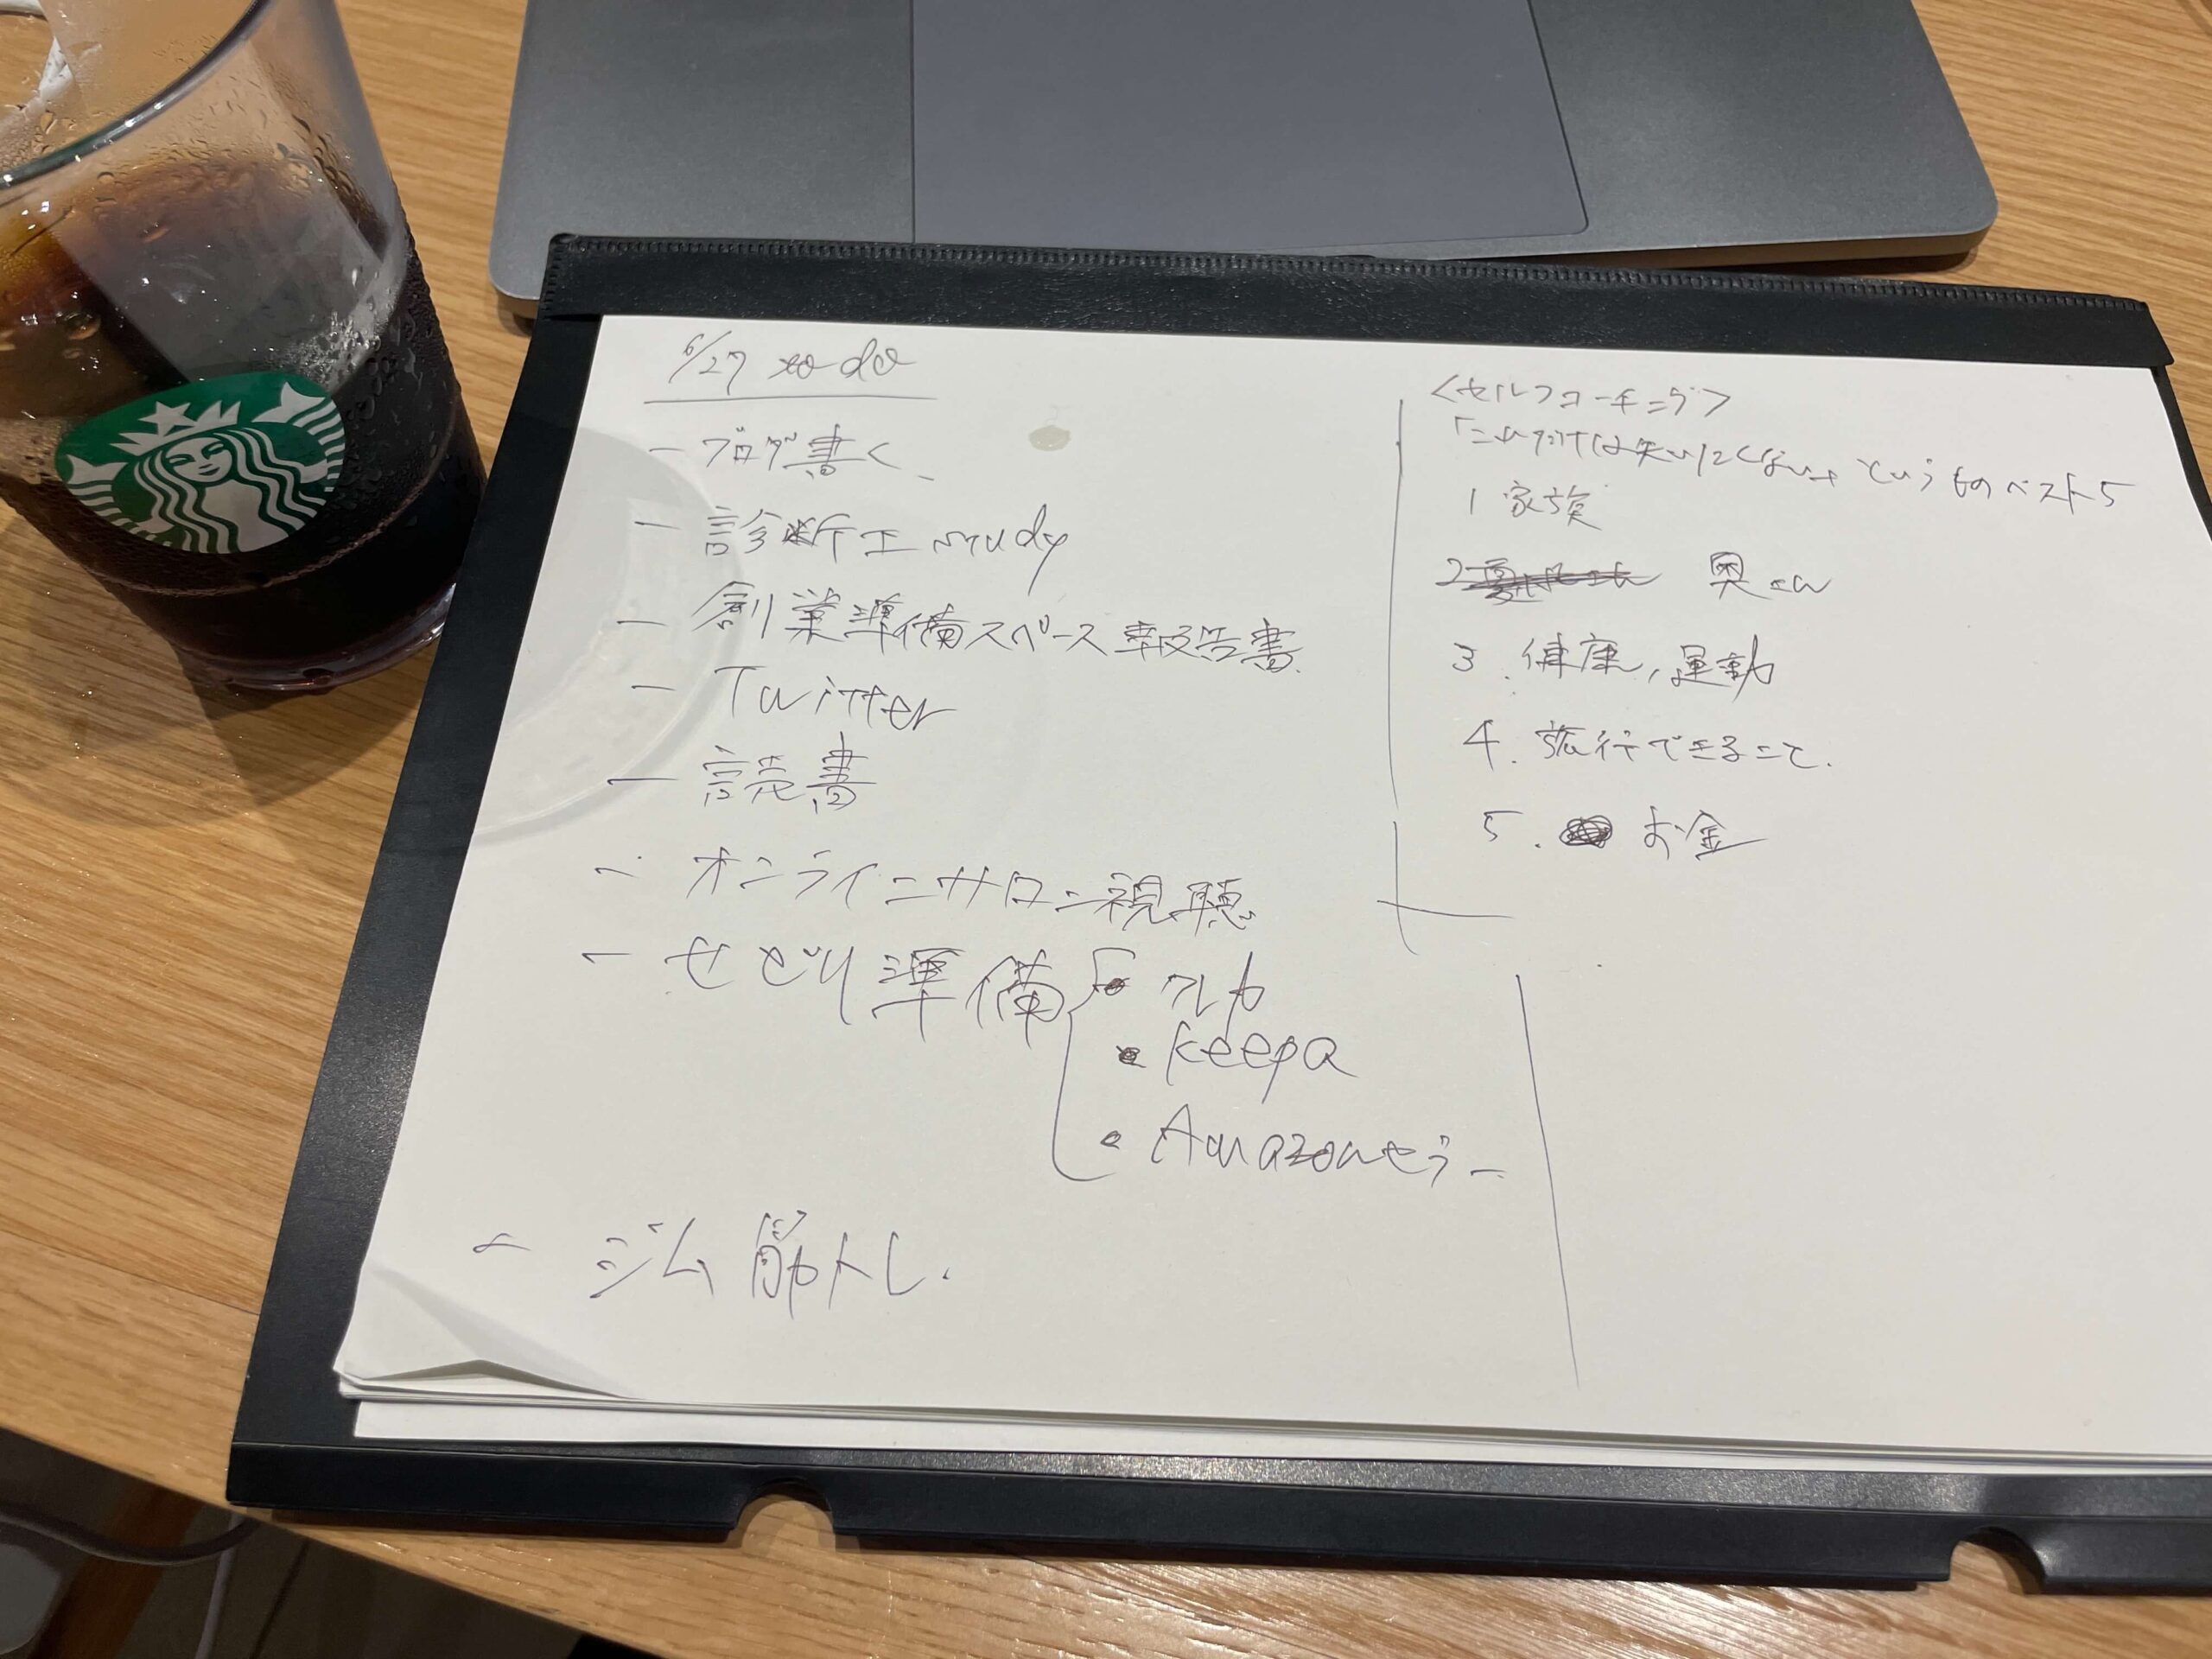 6/27 to do
- ブログ書く
- 診断士 study
- 創業準備スペース報告書
- Twitter
- 読書
- オンラインサロン視聴
- せどり準備
・プレ力
・keepa
・Amazonセラー
- ジム 筋トレ.
<セルフコーチング>
「これだけは失いたくない」というものベスト5
1 家族
2 奥さん
3. 健康, 運動
4. 旅行できること.
5. お金